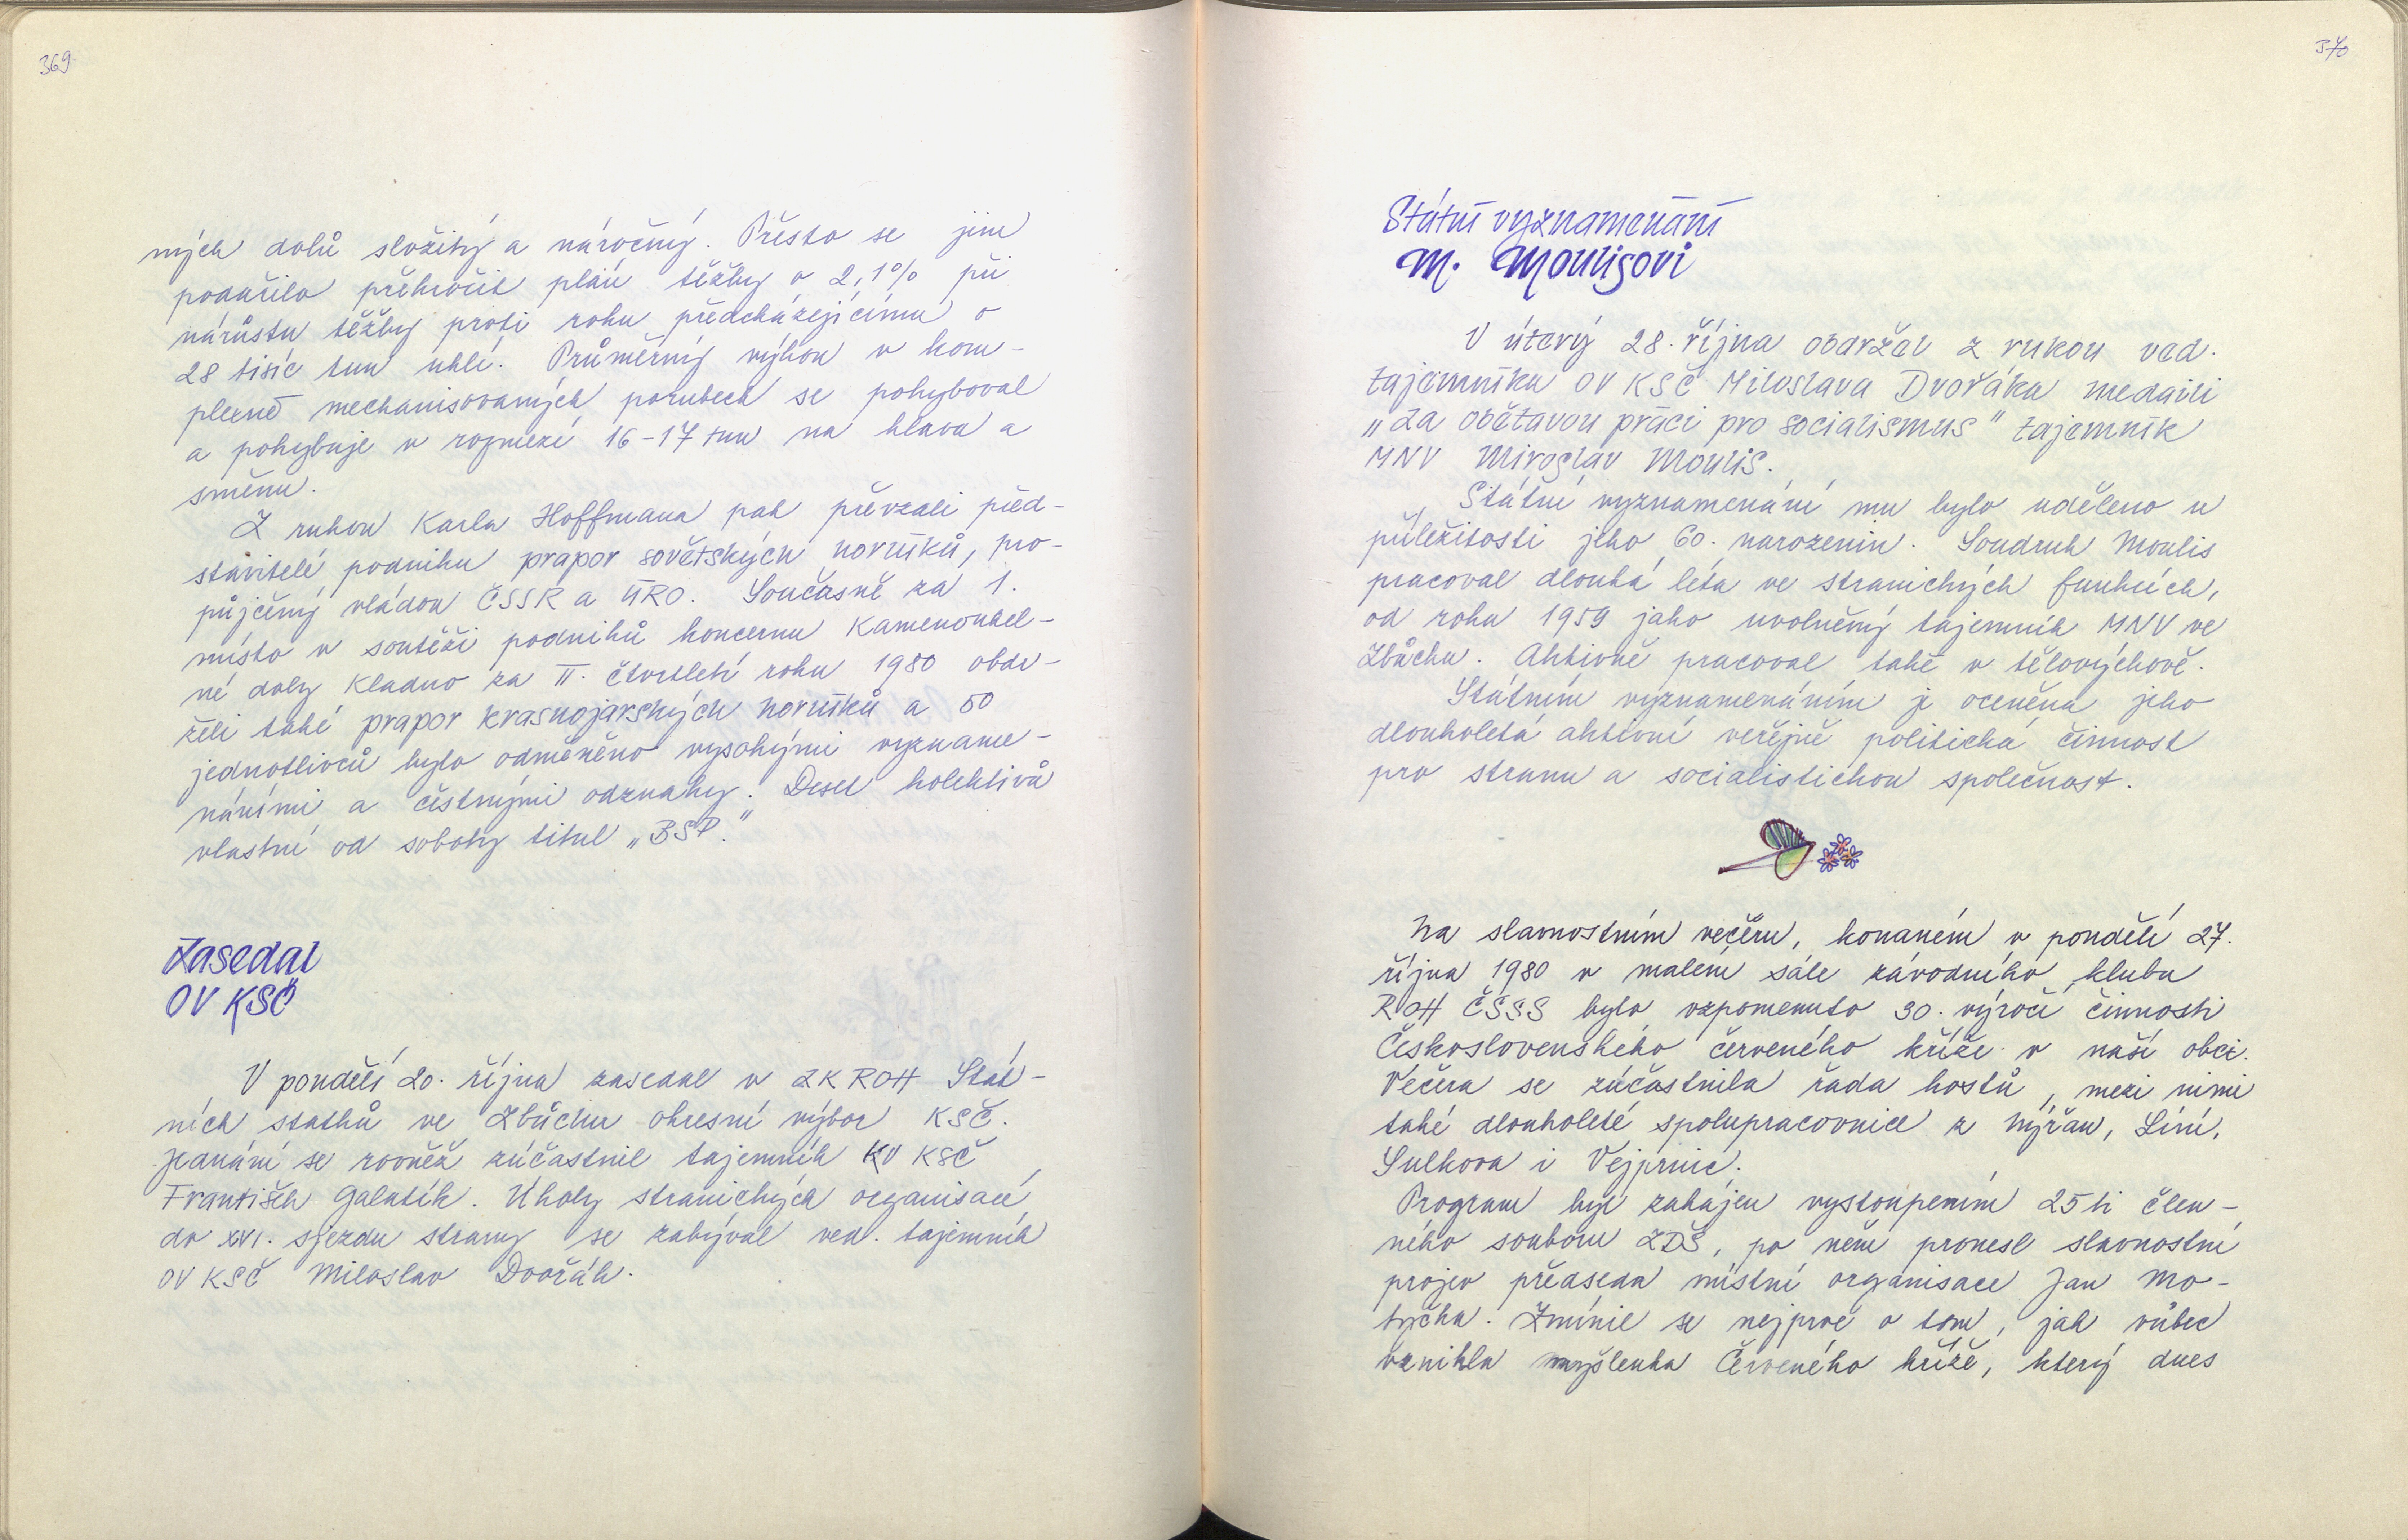 369
ných dolů složitý a náročný. Přesto se jim
podařilo překročit plán těžby o 2,1% při
nárůstu těžby proti roku předcházejícímu o
28 tisíc tun uhlí. Průměrný výkon v kom-
plexně mechanisovaných porubech se pohyboval
a pohybuje v rozmezí 16-17 tun na hlavu a
směnu.
Z rukou Karla Hoffmana pak převzali před-
stavitelé podniku prapor sovětských horníků, pro-
půjčený vládou ČSSR a ÚRO. Současně za 1.
místo v soutěži podniků koncernu Kamenouhel-
né doly Kladno za II. čtvrtletí roku 1980 obdr-
želi také prapor krasnojarských horníků a 50
jednotlivců bylo odměněno vysokými vyzname-
náními a čestnými odznaky. Deset kolektivů
vlastní od soboty titul „BSP."
Zasedal
OV KSČ
V pondělí 20. října zasedal v ZK ROH Stát-
ních statků ve Zbůchu okresní výbor KSČ.
Jednání se rovněž zúčastnil tajemník KV KSČ
František Galatík. Úkoly stranických organisací
do XVI. sjezdu strany se zabýval ved. tajemník
OV KSČ Miloslav Dvořák.
370
Státní vyznamenání
M. Moulisovi
V úterý 28. října obdržel z rukou ved.
tajemníka OV KSČ Miloslava Dvořáka medaili
„Za obětavou práci pro socialismus" tajemník
MNV Miroslav Moulis.
Státní vyznamenání mu bylo uděleno u
příležitosti jeho 60. narozenin. Soudruh Moulis
pracoval dlouhá léta ve stranických funkcích,
od roku 1959 jako uvolněný tajemník MNV ve
Zbůchu. Aktivně pracoval také v tělovýchově.
Státním vyznamenáním je oceněna jeho
dlouholetá aktivní veřejně politická činnost
pro stranu a socialistickou společnost.
Na slavnostním večeru, konaném v pondělí 27.
října 1980 v malém sále závodního klubu
ROH ČSSS bylo vzpomenuto 30. výročí činnosti
Československého červeného kříže v naší obci.
Večera se zúčastnila řada hostů, mezi nimi
také dlouholeté spolupracovnice z Nýřan, Líní,
Sulkova i Vejprnic.
Program byl zahájen vystoupením 25ti člen-
ného souboru ZDŠ, po něm pronesl slavnostní
projev předseda místní organisace Jan Mo-
tyčka. Zmínil se nejprve o tom, jak vůbec
vznikla myšlenka Červeného kříže, který dnes